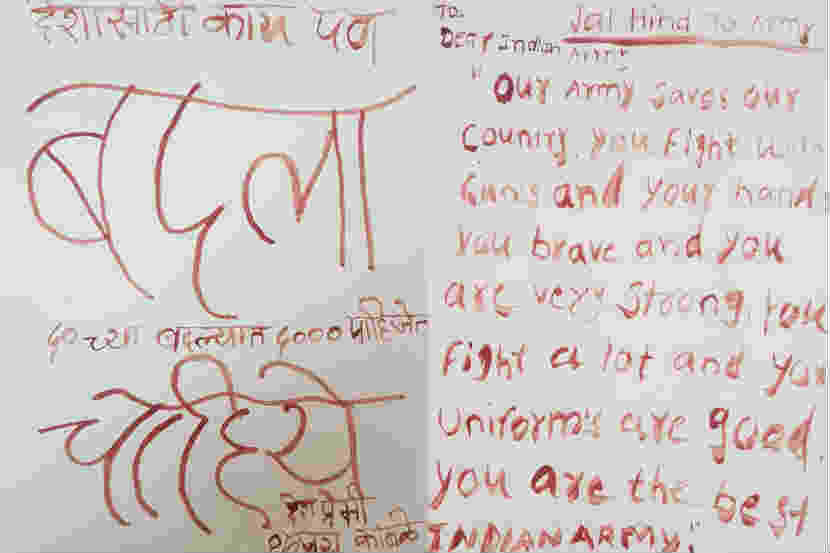 देशासाठी काय पण
बदला
५० च्या बदल्यात ५००० पाहिजेत
चाहिये
देश प्रेमी
Jai Hind to Army
To.
Dear Indian Army
"Our Army saves our
Country. you fight with
Guns and your hand
you brave and you
are very strong. you
Fight a lot and your
uniform's are good.
you are the best
INDIAN ARMY."